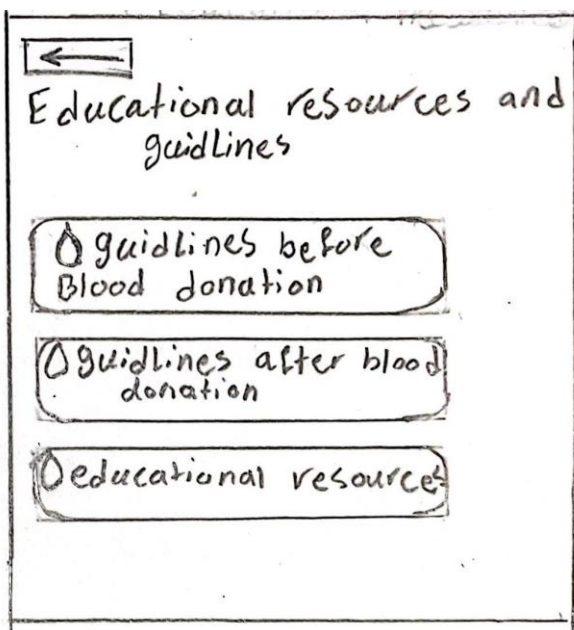 Educational resources and
guidlines
guidlines before
Blood donation
guidlines after blood
donation
educational resources